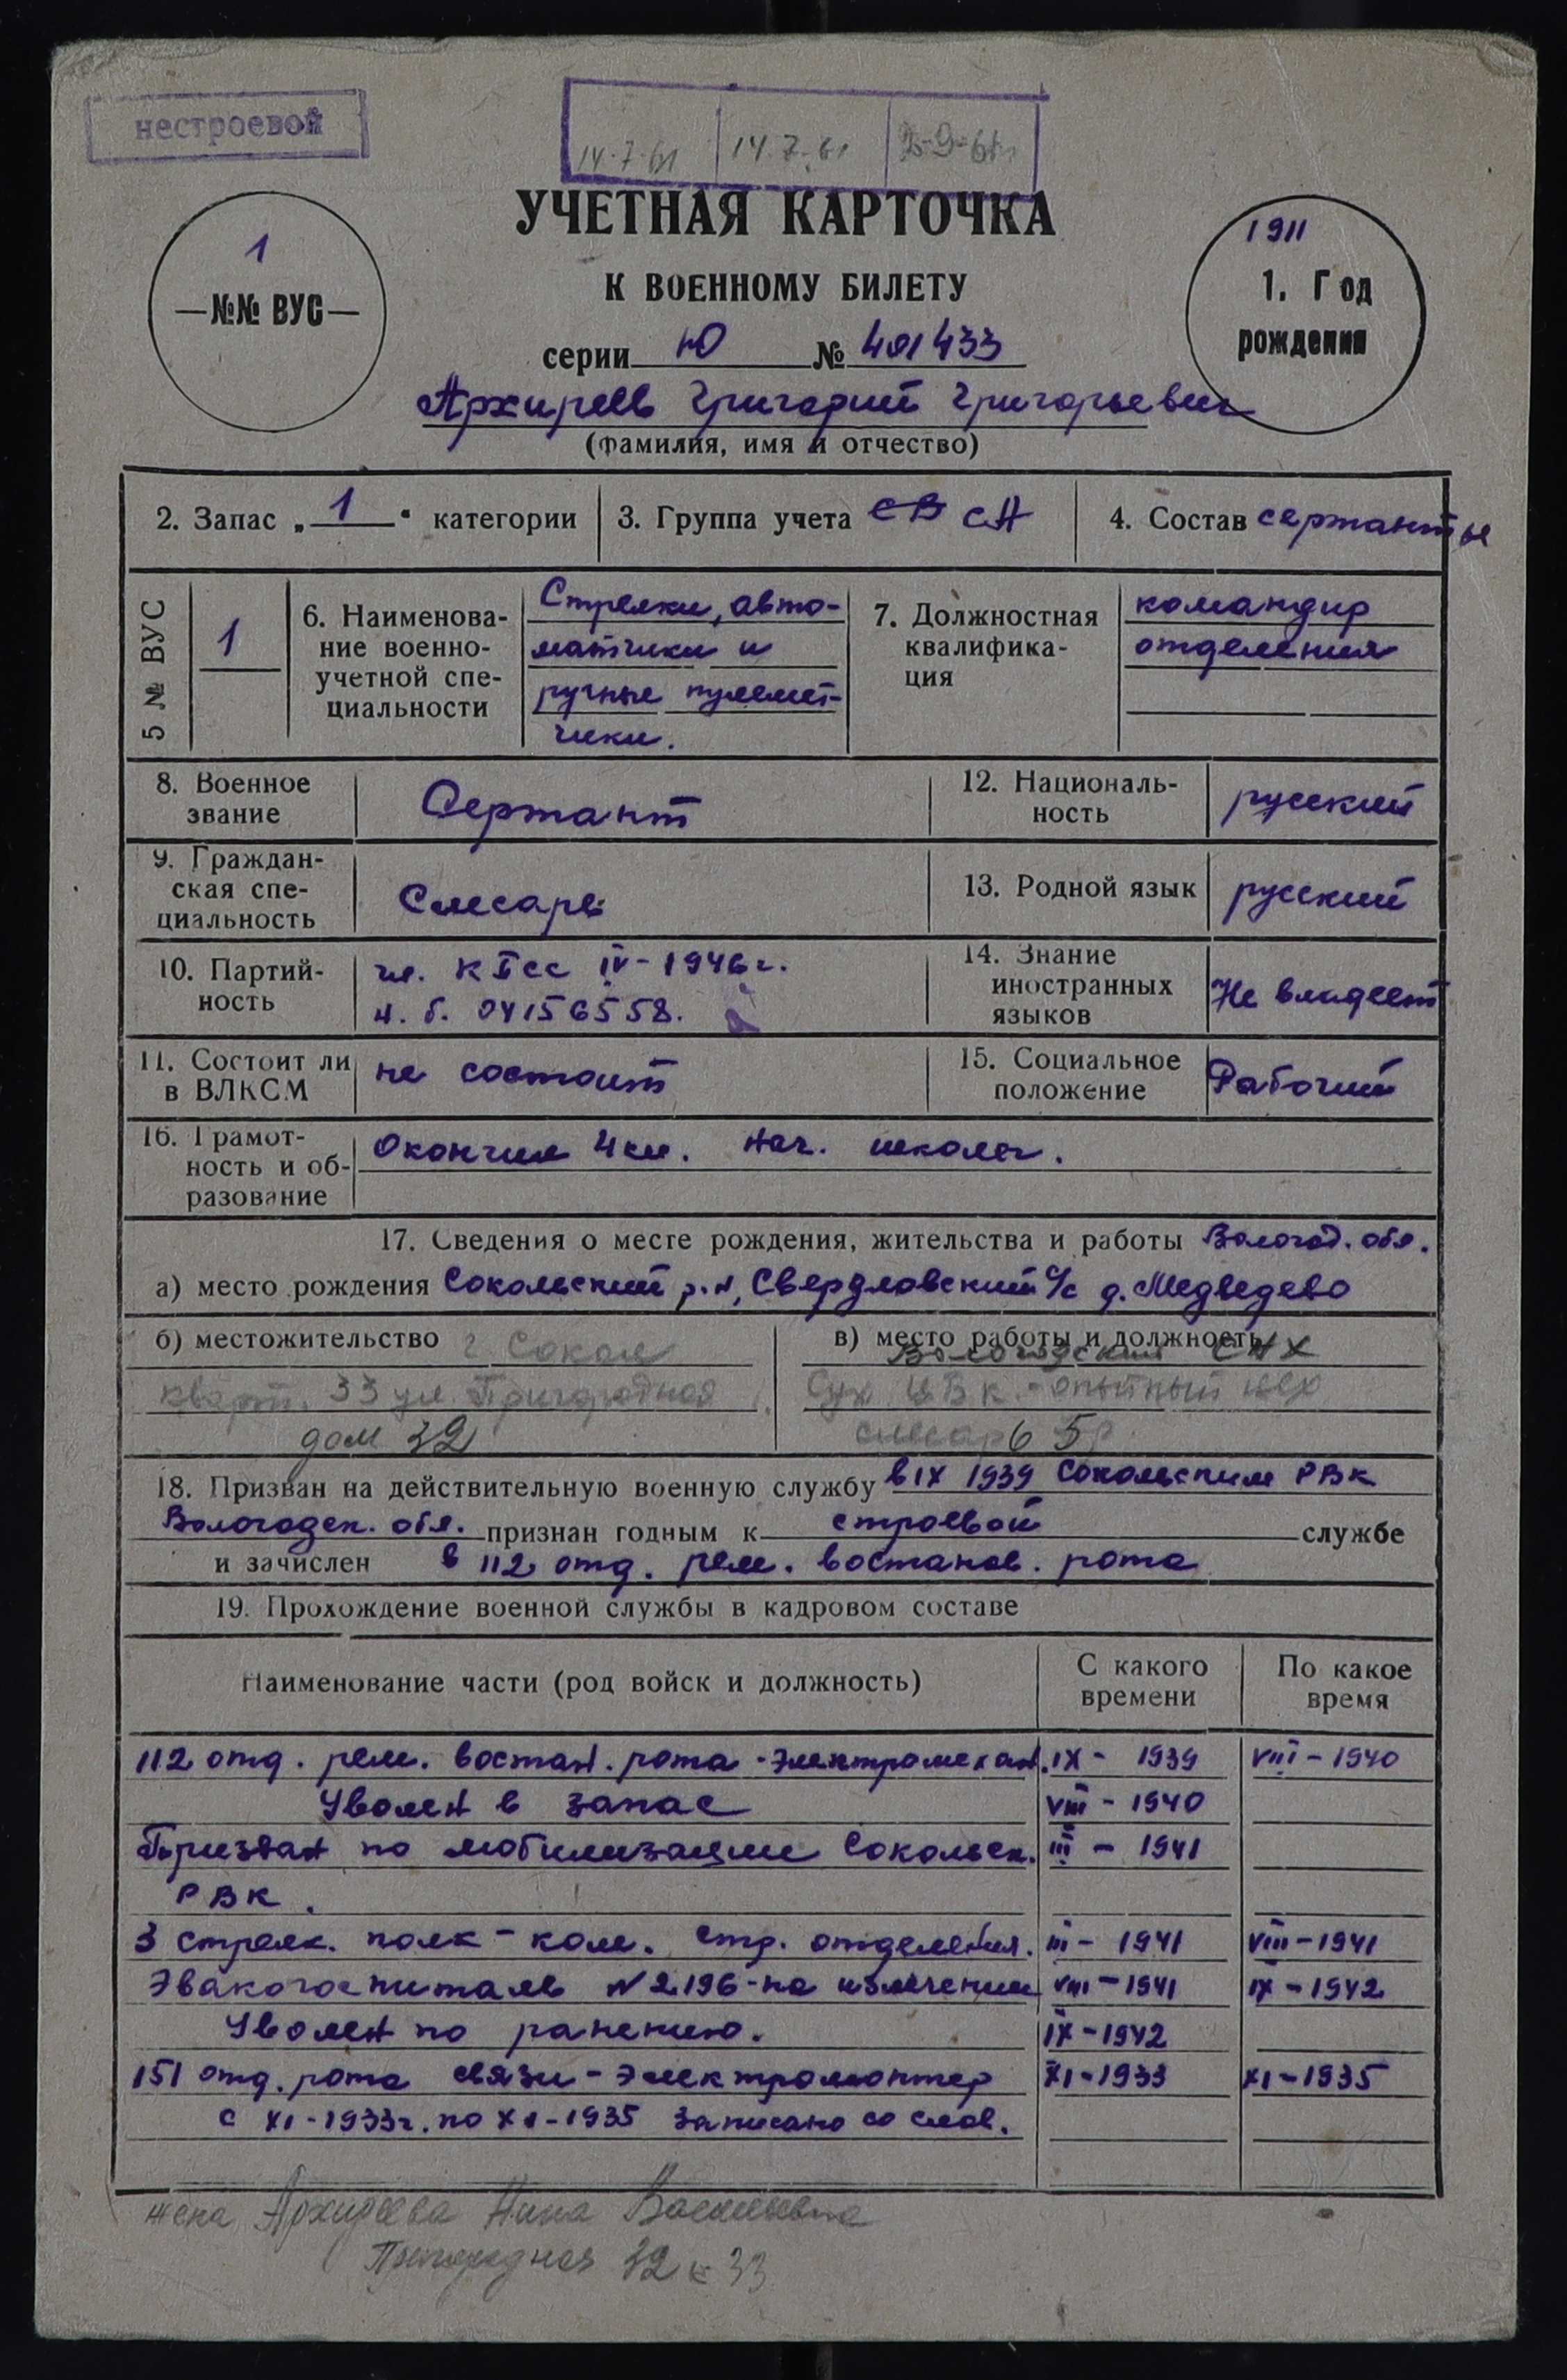 нестроевой
14.7.61 14.7.61 2-9-61
УЧЕТНАЯ КАРТОЧКА
К ВОЕННОМУ БИЛЕТУ
1
—№№ ВУС—
1911
1. Год
рождения
серии Ю № 401433
Архиреев Григорий Григорьевич
(фамилия, имя и отчество)
2. Запас „ 1 “ категории
3. Группа учета СВ СА
4. Состав сержанты
5 № ВУС
1
6. Наименова-
ние военно-
учетной спе-
циальности
Стрелки, авто-
матчики и
ручные пулемет-
чики.
7. Должностная
квалифика-
ция
командир
отделения
8. Военное
звание
Сержант
12. Националь-
ность
русский
9. Граждан-
ская спе-
циальность
Слесарь
13. Родной язык
русский
10. Партий-
ность
чл. КПСС IV-1946г.
ч. б. 04156558.
14. Знание
иностранных
языков
Не владеет
11. Состоит ли
в ВЛКСМ
не состоит
15. Социальное
положение
Рабочий
16. Грамот-
ность и об-
разование
Окончил 4 кл. нач. школы.
17. Сведения о месте рождения, жительства и работы Вологод. обл.
а) место рождения Сокольский р-н, Свердловский с/с д. Медведево
б) местожительство г Сокол
кварт. 33 ул. Пригородная
дом 32
в) место работы и должность
Вологодский СНХ
Сух ЦБК - опытный цех
слесарь 5р
18. Призван на действительную военную службу в IX 1939 Сокольским РВК
Вологодск. обл. признан годным к строевой службе
и зачислен в 112 отд. рем. востанов. рота
19. Прохождение военной службы в кадровом составе
Наименование части (род войск и должность)
С какого
времени
По какое
время
112 отд. рем. востан. рота - электромехан. IX - 1939 VIII - 1940
Уволен в запас VIII - 1940
Призван по мобилизации Сокольск. III - 1941
РВК.
3 стрелк. полк - ком. стр. отделения. III - 1941 VIII - 1941
Эвакогоспиталь N 2196 - на излечении VIII - 1941 IX - 1942
Уволен по ранению. IX - 1942
151 отд. рота связи - электромонтер XI - 1933 XI - 1935
с XI - 1933г. по XI - 1935 записано со слов.
жена Архиреева Нина Васильевна
Пригородная 32 к 33